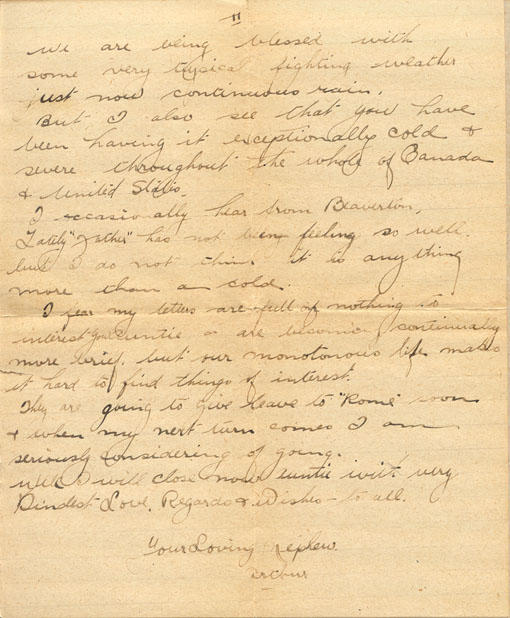 II
We are being blessed with
some very typical fighting weather
just now continuous rain.
But I also see that you have
been having it exceptionally cold &
severe throughout the whole of Canada
& United States.
I occasionally hear from Beaverton,
Lately "Father" has not been feeling so well
but I do not think it is anything
more than a cold.
I fear my letters are full of nothing to
interest you auntie & are becoming continually
more brief, but our monotonous life makes
it hard to find things of interest.
They are going to give leave to "Rome" soon
& when my next turn comes I am
seriously considering of going.
Well I will close now auntie with very
Kindest Love, Regards & Wishes - to all.
Your Loving nephew
Arthur